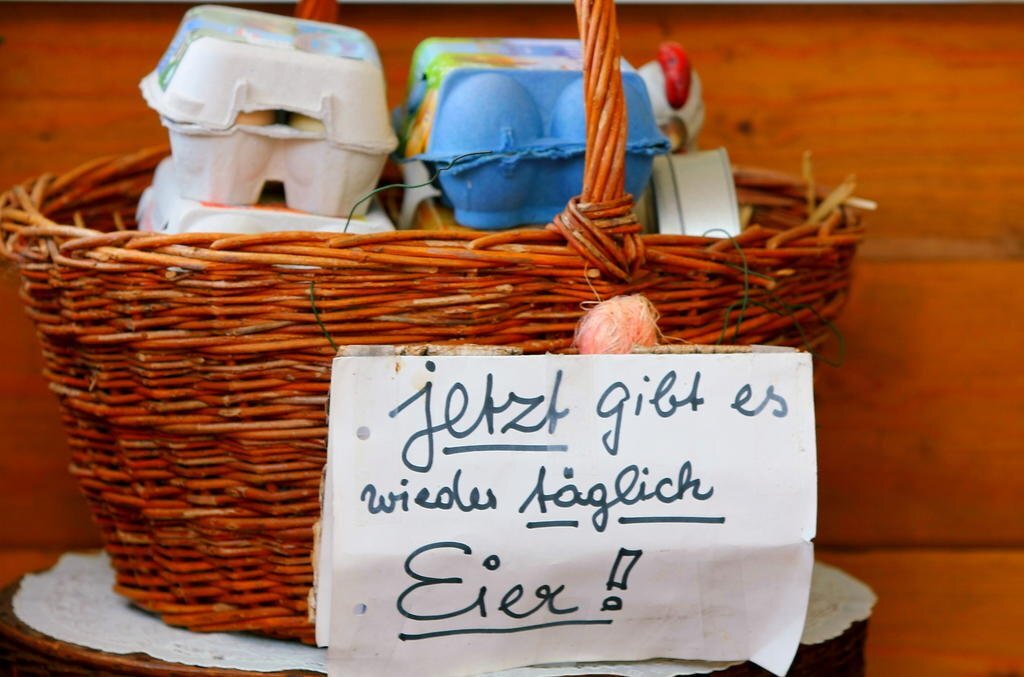 jetzt gibt es
wieder täglich
Eier!